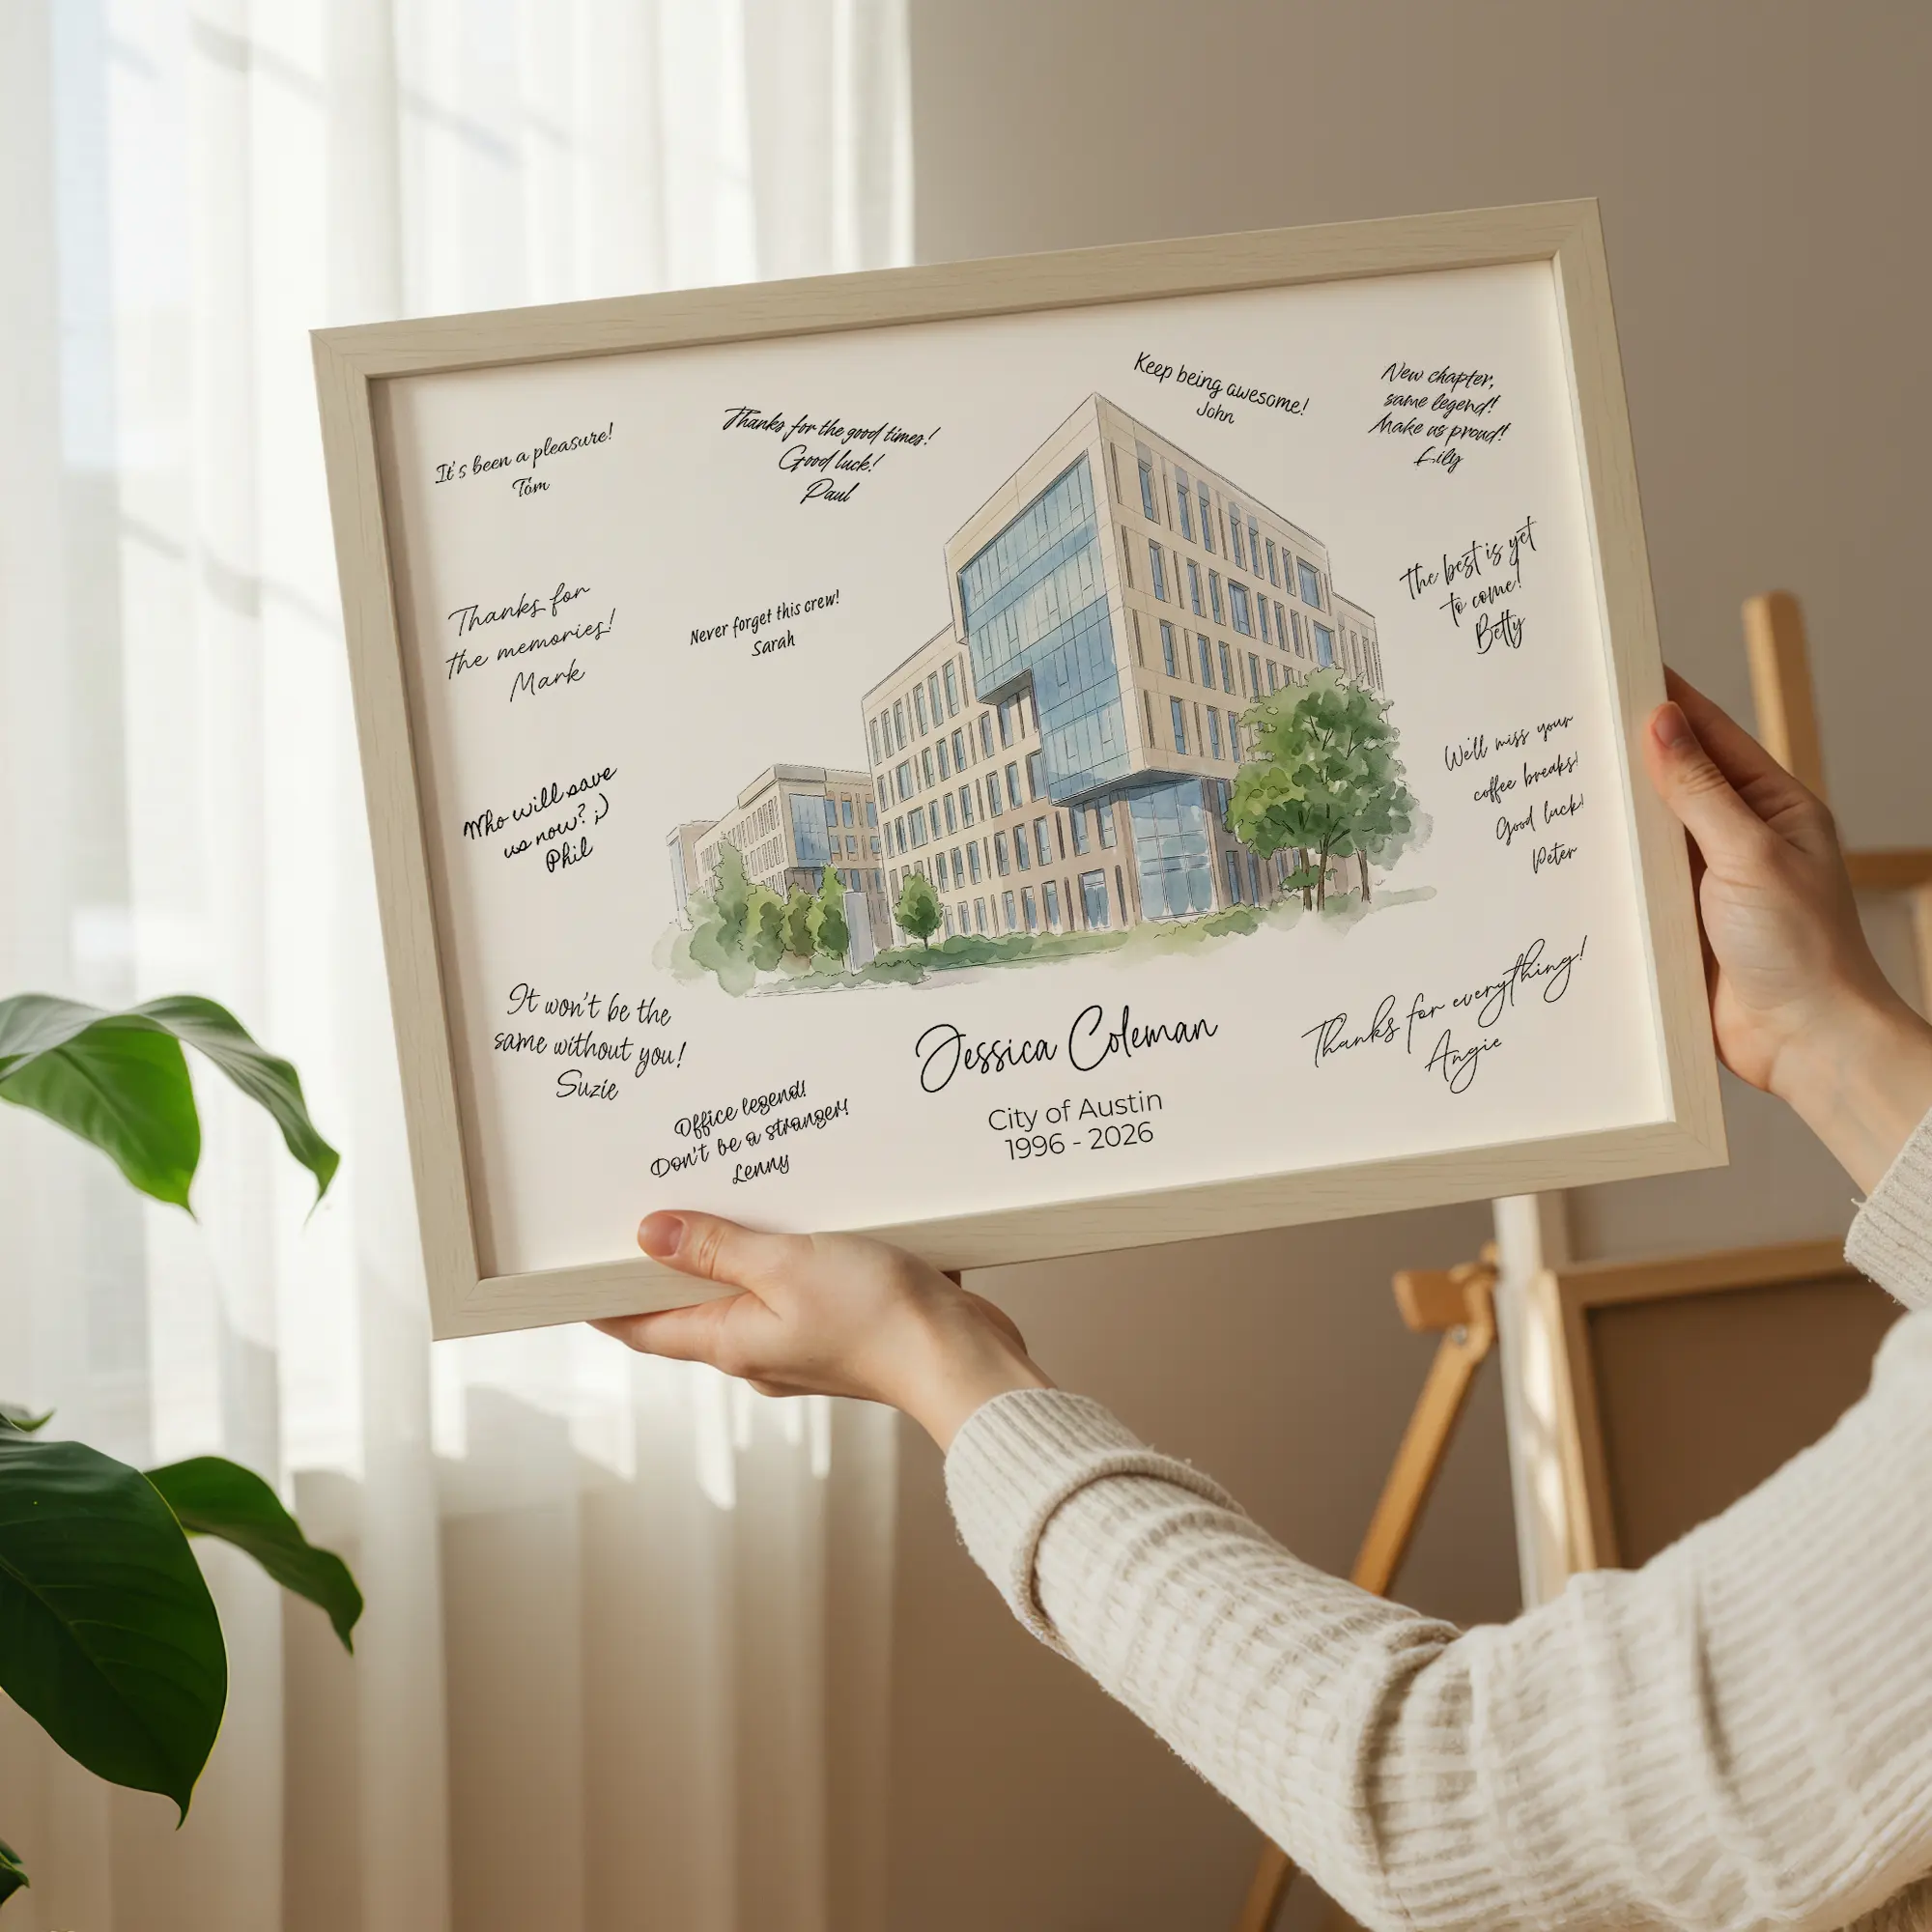 It's been a pleasure!
Tom
Thanks for the good times!
Good luck!
Paul
Keep being awesome!
John
New chapter,
same legend!
Make us proud!
Lily
Thanks for
the memories!
Mark
Never forget this crew!
Sarah
The best is yet
to come!
Betty
Who will save
us now? ;)
Phil
We'll miss your
coffee breaks!
Good luck!
Peter
It won't be the
same without you!
Suzie
Office legend!
Don't be a stranger!
Lenny
Jessica Coleman
City of Austin
1996 - 2026
Thanks for everything!
Angie